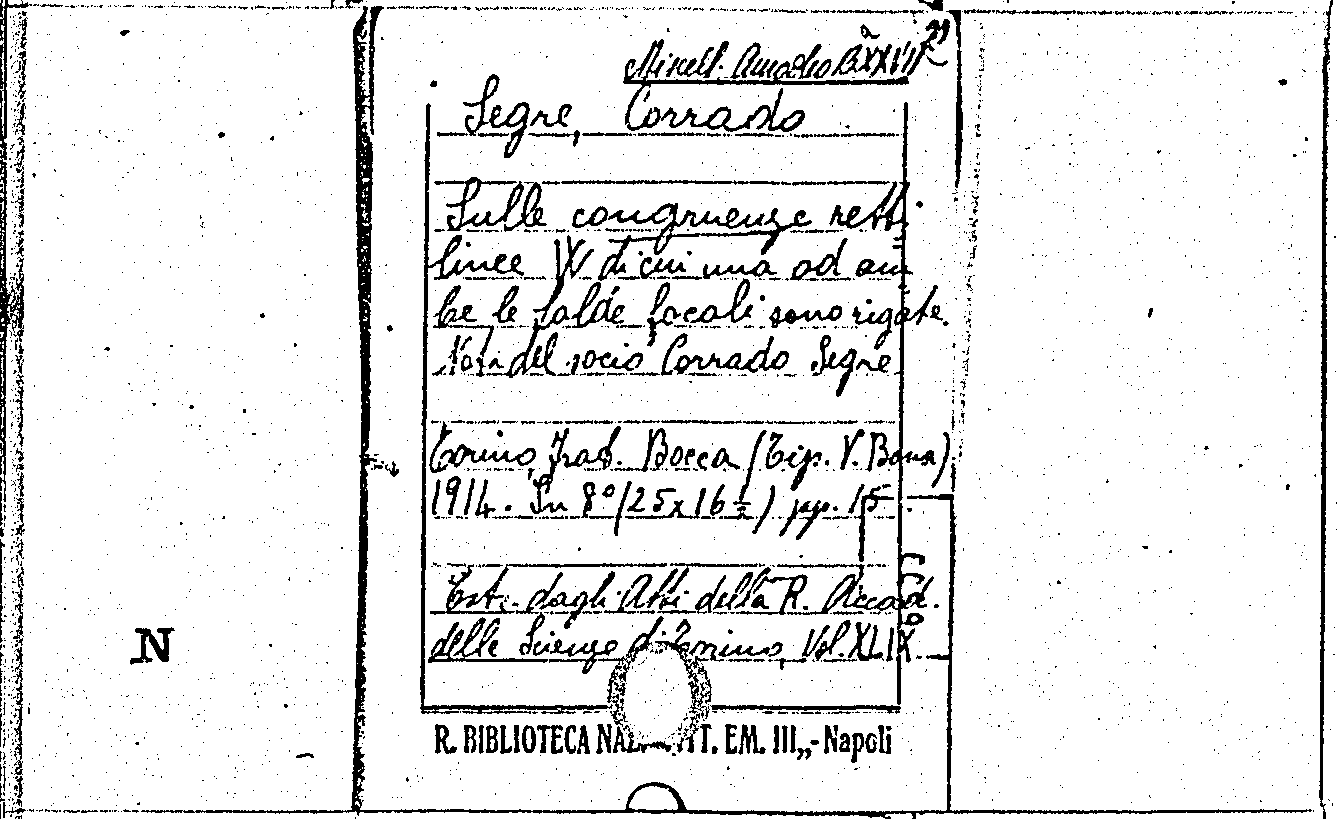 Miscell. Amodeo B. XXVII 21
Segre, Corrado
Sulle congruenze retti-
linee W di cui una od am-
be le falde focali sono rigate.
Nota del socio Corrado Segre
Torino, Frat. Bocca (Tip. V. Bona)
1914. In 8° (25x16 ½) pp. 15.
Estr. dagli Atti della R. Accad.
delle Scienze di Torino, Vol. XLIX
N
R. BIBLIOTECA NAZ. VIT. EM. III„-Napoli